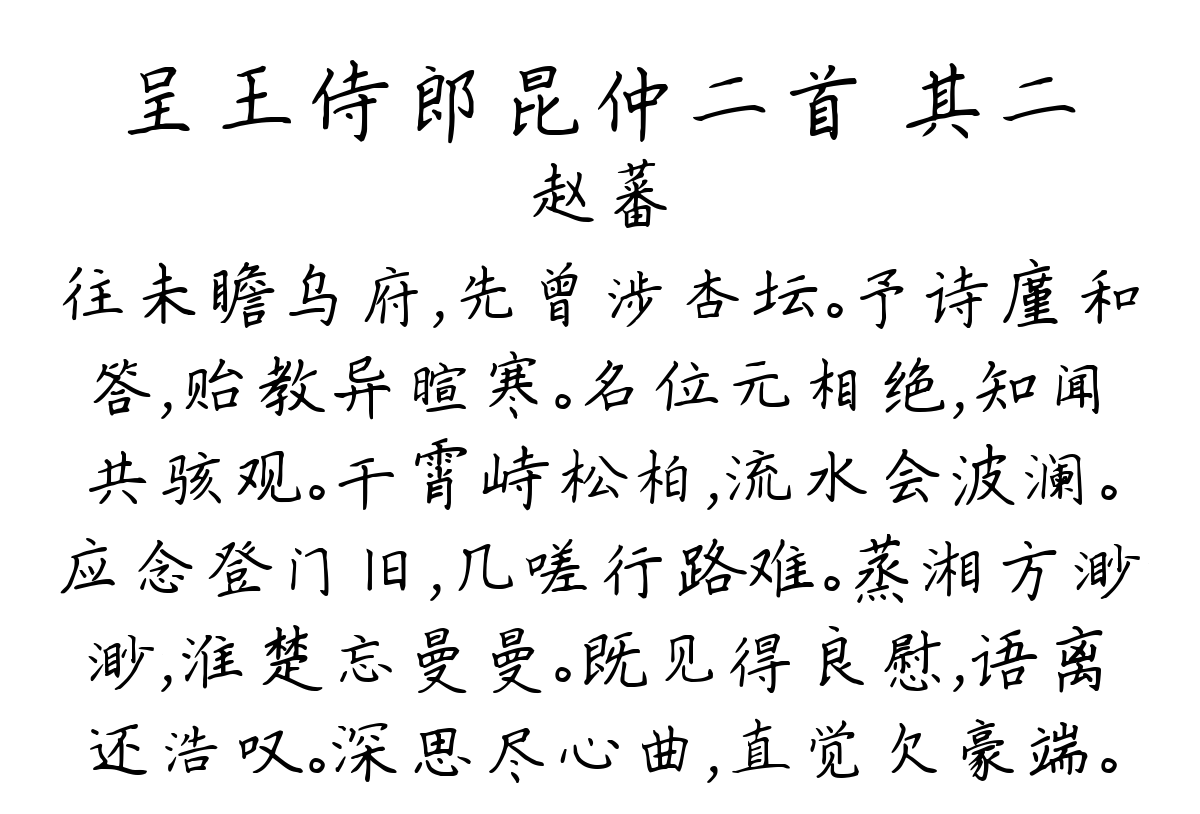 呈王侍郎昆仲二首 其二
赵蕃
往未瞻乌府,先曾涉杏坛。予诗廑和
答,贻教异暄寒。名位元相绝,知闻
共骇观。干霄峙松柏,流水会波澜。
应念登门旧,几嗟行路难。蒸湘方渺
渺,淮楚忘曼曼。既见得良慰,语离
还浩叹。深思尽心曲,直觉欠豪端。